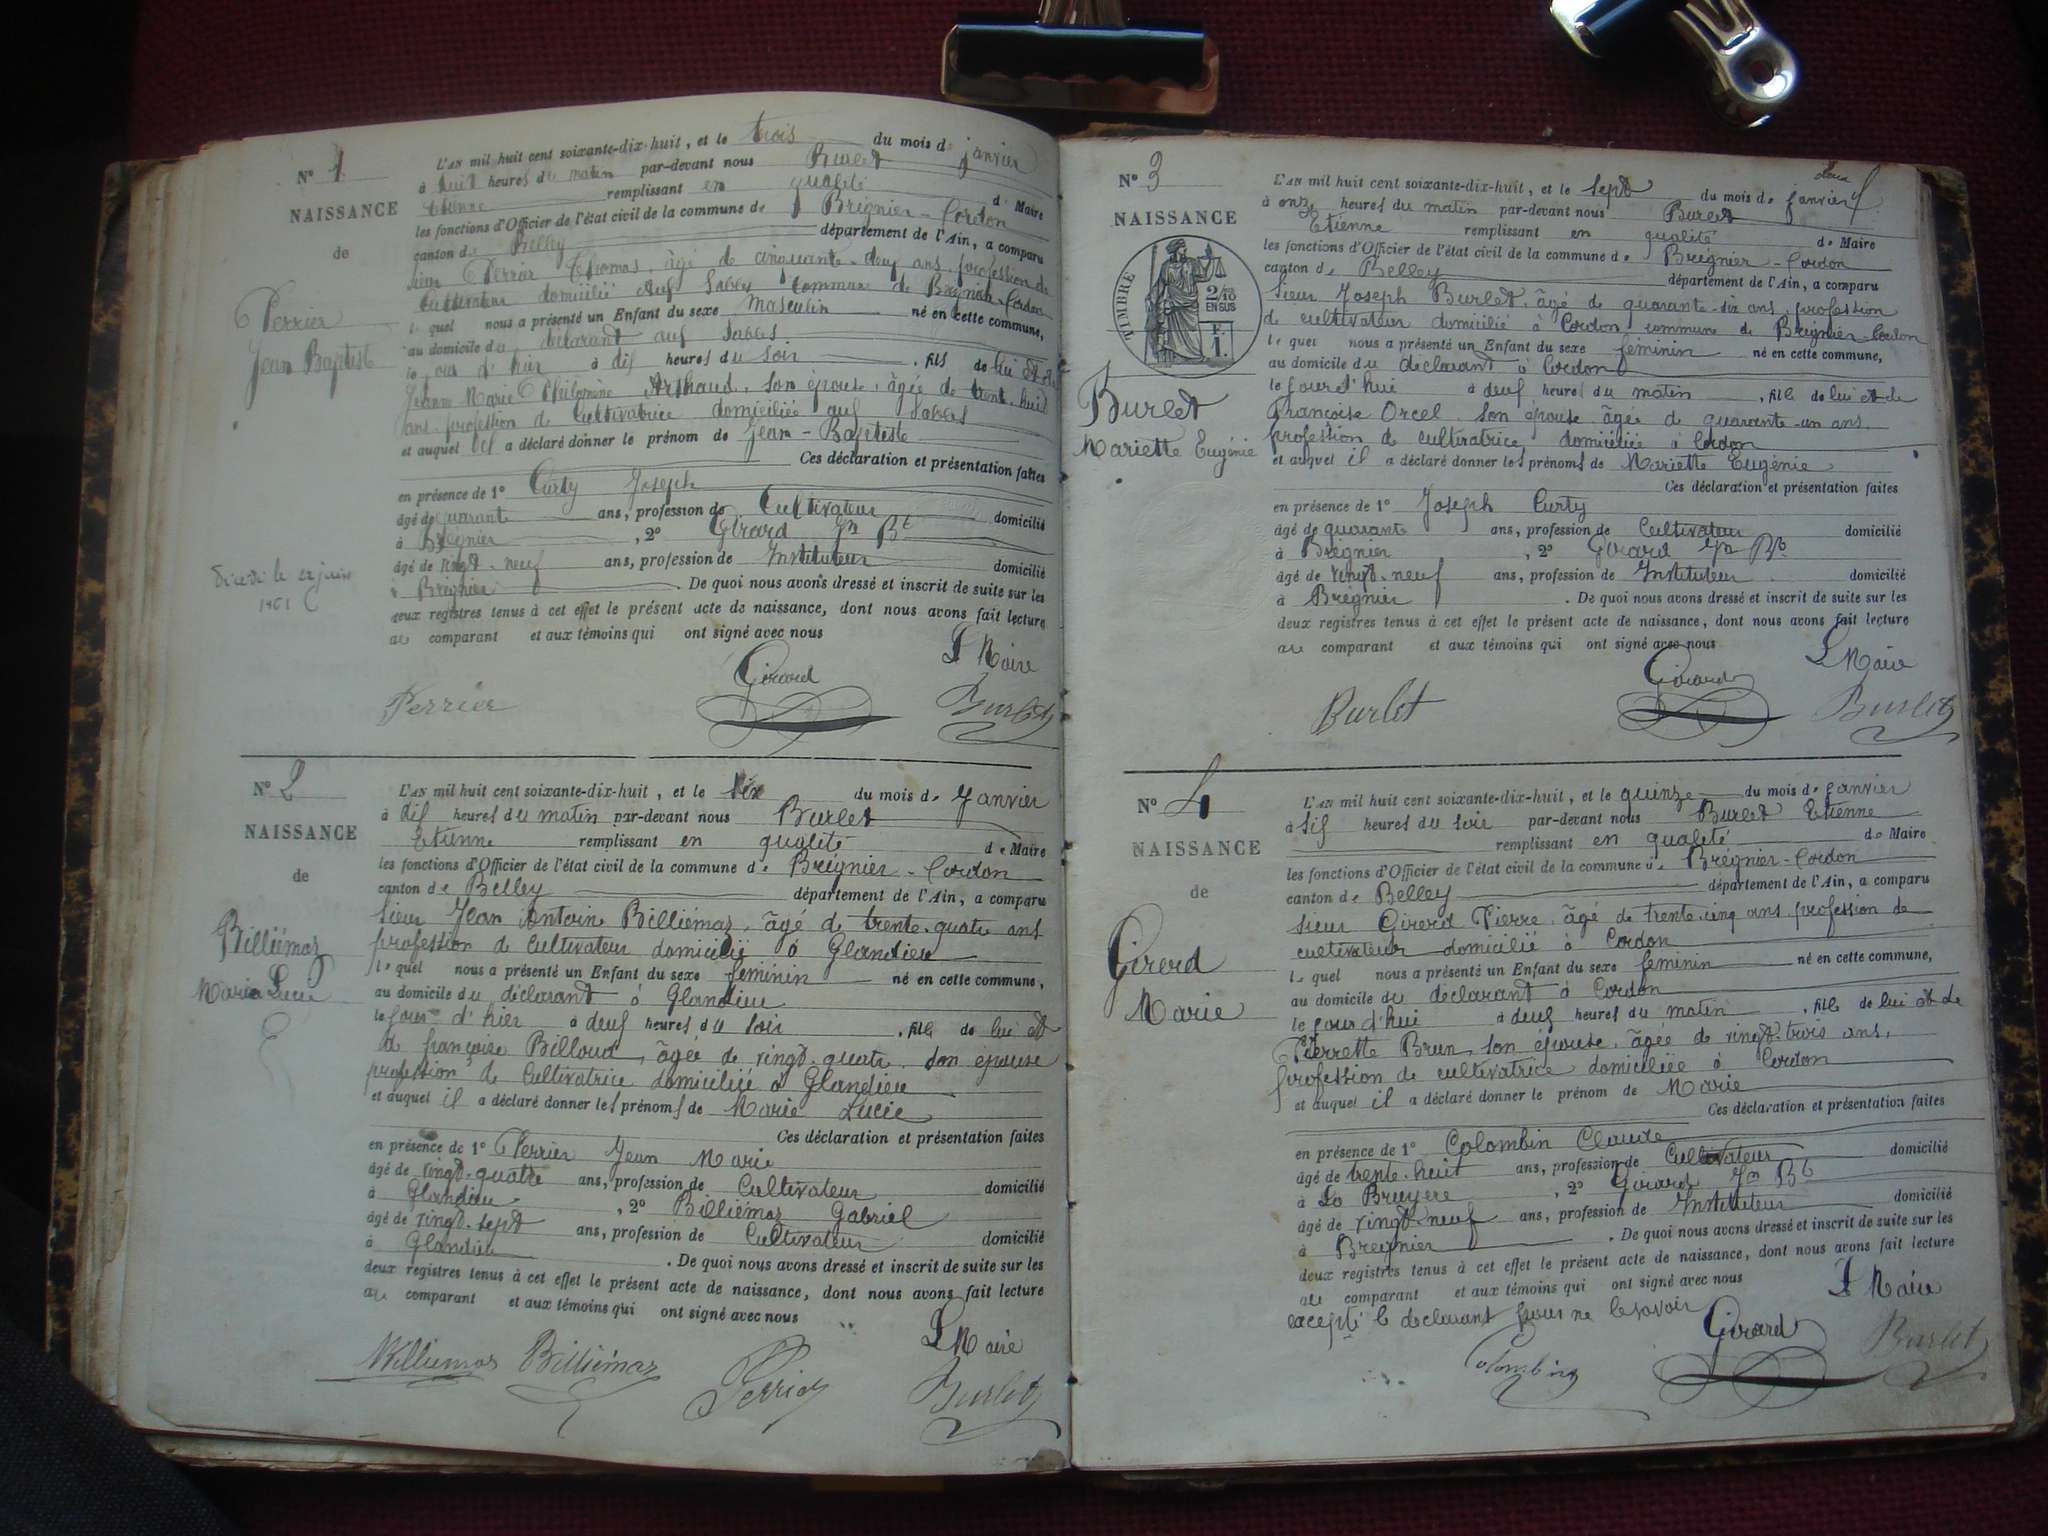 N° 1
NAISSANCE
de
Perrier
Jean Baptiste
L'AN mil huit cent soixante-dix-huit, et le trois du mois de janvier
à huit heures du matin par-devant nous Burlet
Etienne remplissant en qualité de Maire
les fonctions d'Officier de l'état civil de la commune de Brégnier-Cordon
canton de Belley département de l'Ain, a comparu
sieur Perrier Thomas, âgé de cinquante-deux ans, profession de
Cultivateur domicilié aux Sables commune de Brégnier-Cordon
le quel nous a présenté un Enfant du sexe masculin né en cette commune,
au domicile du déclarant aux Sables
le jour d'hier à dix heures du soir, fils de lui et de
Jeanne Marie Philomène Arthaud, son épouse, âgée de trente-huit
ans, profession de Cultivatrice domiciliée aux Sables
et auquel il a déclaré donner le prénom de Jean-Baptiste
Ces déclaration et présentation faites
en présence de 1° Curty Joseph
âgé de quarante ans, profession de Cultivateur domicilié
à Brégnier, 2° Girard Jn Bte
âgé de vingt-neuf ans, profession de Instituteur domicilié
à Brégnier. De quoi nous avons dressé et inscrit de suite sur les
deux registres tenus à cet effet le présent acte de naissance, dont nous avons fait lecture
au comparant et aux témoins qui ont signé avec nous
Le Maire
Perrier Girard Burlet
N° 2
NAISSANCE
de
Billiémaz
Marie Lucie
L'AN mil huit cent soixante-dix-huit, et le six du mois de Janvier
à dix heures du matin par-devant nous Burlet
Etienne remplissant en qualité de Maire
les fonctions d'Officier de l'état civil de la commune de Brégnier-Cordon
canton de Belley département de l'Ain, a comparu
sieur Jean Antoine Billiémaz, âgé de trente-quatre ans
profession de cultivateur domicilié à Glandieu
le quel nous a présenté un Enfant du sexe féminin né en cette commune,
au domicile du déclarant à Glandieu
le jour d'hier à deux heures du soir, fille de lui et
de françoise Billoud, âgée de vingt-quatre, son épouse
profession de Cultivatrice domiciliée à Glandieu
et auquel il a déclaré donner les prénoms de Marie Lucie
Ces déclaration et présentation faites
en présence de 1° Perrier Jean Marie
âgé de vingt-quatre ans, profession de Cultivateur domicilié
à Glandieu, 2° Billiémaz Gabriel
âgé de vingt-sept ans, profession de Cultivateur domicilié
à Glandieu. De quoi nous avons dressé et inscrit de suite sur les
deux registres tenus à cet effet le présent acte de naissance, dont nous avons fait lecture
au comparant et aux témoins qui ont signé avec nous
Le Maire
Billiémaz Perrier Burlet
deux
N° 3
NAISSANCE
TIMBRE
2/10
EN SUS
F.
1.
Burlet
Mariette Eugénie
L'AN mil huit cent soixante-dix-huit, et le sept du mois de janvier
à onze heures du matin par-devant nous Burlet
Etienne remplissant en qualité de Maire
les fonctions d'Officier de l'état civil de la commune de Brégnier-Cordon
canton de Belley département de l'Ain, a comparu
sieur Joseph Burlet, âgé de quarante-six ans, profession
de cultivateur domicilié à Cordon, commune de Brégnier-Cordon
le quel nous a présenté un Enfant du sexe féminin né en cette commune,
au domicile du déclarant à Cordon
le jourd'hui à deux heures du matin, fille de lui et de
françoise Orcel, son épouse, âgée de quarante-un ans,
profession de cultivatrice, domiciliée à Cordon
et auquel il a déclaré donner les prénoms de Mariette Eugénie
Ces déclaration et présentation faites
en présence de 1° Joseph Curty
âgé de quarante ans, profession de Cultivateur domicilié
à Brégnier, 2° Girard Jn Bte
âgé de vingt-neuf ans, profession de Instituteur domicilié
à Brégnier. De quoi nous avons dressé et inscrit de suite sur les
deux registres tenus à cet effet le présent acte de naissance, dont nous avons fait lecture
au comparant et aux témoins qui ont signé avec nous
Le Maire
Burlet Girard Burlet
N° 4
NAISSANCE
de
Girerd
Marie
L'AN mil huit cent soixante-dix-huit, et le quinze du mois de janvier
à six heures du soir par-devant nous Burlet Etienne
remplissant en qualité de Maire
les fonctions d'Officier de l'état civil de la commune de Brégnier-Cordon
canton de Belley département de l'Ain, a comparu
sieur Girerd Pierre, âgé de trente-cinq ans, profession de
cultivateur domicilié à Cordon
le quel nous a présenté un Enfant du sexe féminin né en cette commune,
au domicile du déclarant à Cordon
le jourd'hui à deux heures du matin, fille de lui et de
Pierrette Brun, son épouse, âgée de vingt-trois ans,
profession de cultivatrice domiciliée à Cordon
et auquel il a déclaré donner le prénom de Marie
Ces déclaration et présentation faites
en présence de 1° Colombin Claude
âgé de trente-huit ans, profession de Cultivateur domicilié
à La Bruyère, 2° Girard Jn Bte
âgé de vingt-neuf ans, profession de Instituteur domicilié
à Brégnier. De quoi nous avons dressé et inscrit de suite sur les
deux registres tenus à cet effet le présent acte de naissance, dont nous avons fait lecture
au comparant et aux témoins qui ont signé avec nous
excepté le déclarant pour ne le savoir
Le Maire
Colombin Girard Burlet